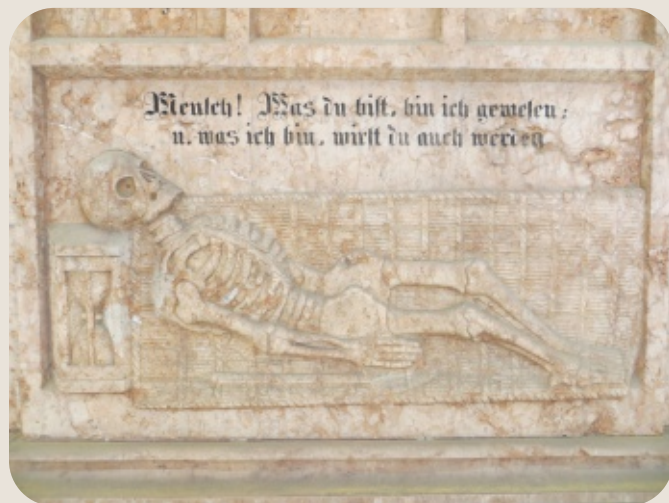 Mensch! Was du bist, bin ich gewesen;
u. was ich bin, wirst du auch werden